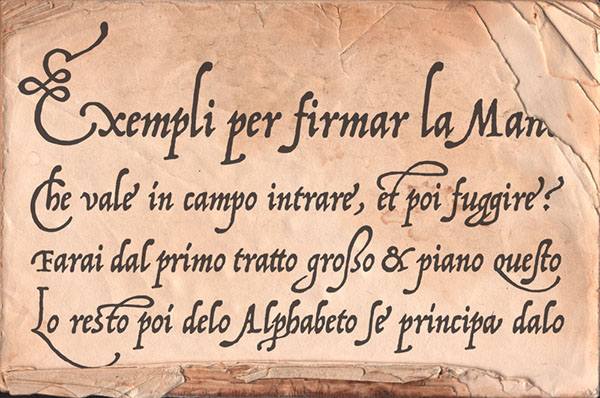 Exempli per firmar la Man
Che vale in campo intrare, et poi fuggire?
Farai dal primo tratto großo & piano queſto
Lo resto poi delo Alphabeto ſe principa dalo